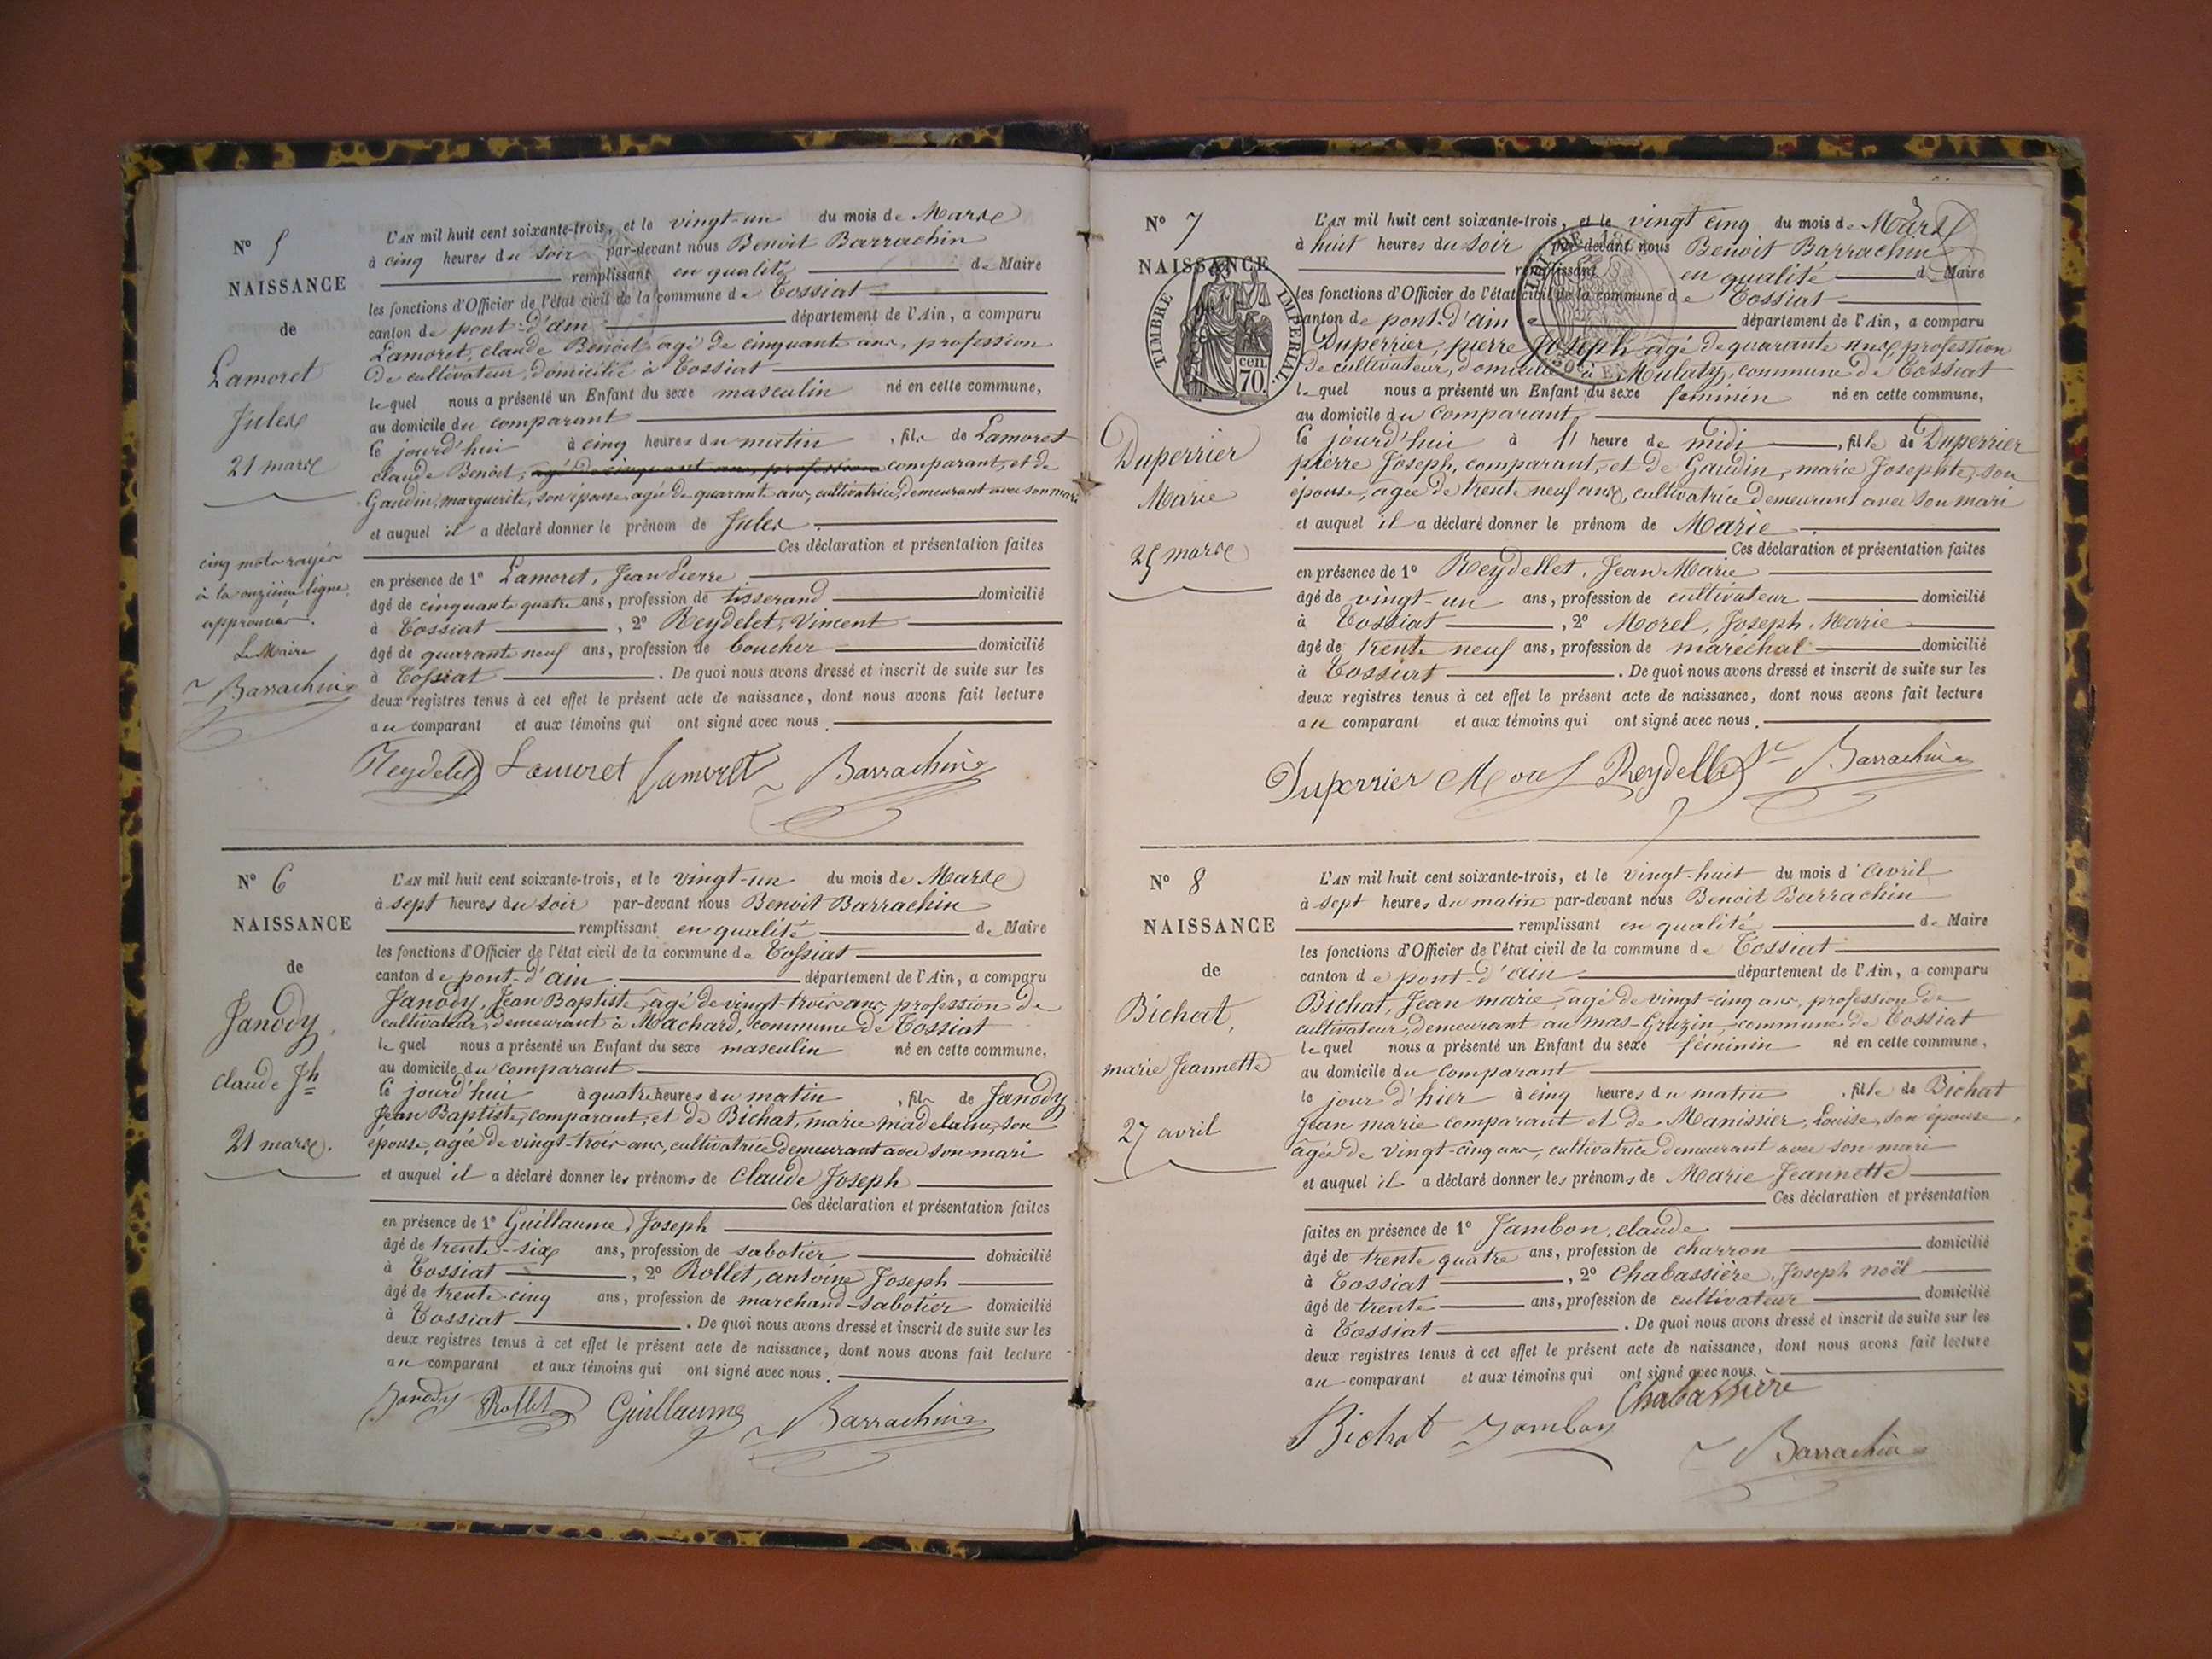 N° 5
NAISSANCE
de
Lamoret
Jules
21 mars
cinq mots rayés
à la onzième ligne,
approuvés.
Le Maire
Barrachin
L'AN mil huit cent soixante-trois, et le vingt-un du mois de Mars
à cinq heures du soir par-devant nous Benoit Barrachin
remplissant en qualité de Maire
les fonctions d'Officier de l'état civil de la commune de Tossiat
canton de pont-d'ain département de l'Ain, a comparu
Lamoret, claude Benoit, âgé de cinquante ans, profession
de cultivateur, domicilié à Tossiat
lequel nous a présenté un Enfant du sexe masculin né en cette commune,
au domicile du comparant
ce jourd'hui à cinq heures du matin, fils de Lamoret
claude Benoit, âgé de cinquant ans, profession comparant, et de
Gaudin, marguerite, son épouse agée de quarante ans, cultivatrice, demeurant avec son mari
et auquel il a déclaré donner le prénom de Jules
Ces déclaration et présentation faites
en présence de 1° Lamoret, Jean Pierre
âgé de cinquante quatre ans, profession de tisserand domicilié
à Tossiat, 2° Reydelet, Vincent
âgé de quarante neuf ans, profession de boucher domicilié
à Tossiat. De quoi nous avons dressé et inscrit de suite sur les
deux registres tenus à cet effet le présent acte de naissance, dont nous avons fait lecture
au comparant et aux témoins qui ont signé avec nous.
Reydelet Lamoret Lamoret Barrachin
N° 6
NAISSANCE
de
Janody,
claude Jh
21 mars.
L'AN mil huit cent soixante-trois, et le vingt-un du mois de Mars
à sept heures du soir par-devant nous Benoit Barrachin
remplissant en qualité de Maire
les fonctions d'Officier de l'état civil de la commune de Tossiat
canton de pont-d'ain département de l'Ain, a comparu
Janody, Jean Baptiste, âgé de vingt-trois ans, profession de
cultivateur, demeurant à Machard, commune de Tossiat
lequel nous a présenté un Enfant du sexe masculin né en cette commune,
au domicile du comparant
ce jourd'hui à quatre heures du matin, fils de Janody
Jean Baptiste, comparant, et de Bichat, marie madelaine, son
épouse, agée de vingt-trois ans, cultivatrice demeurant avec son mari
et auquel il a déclaré donner les prénoms de Claude Joseph
Ces déclaration et présentation faites
en présence de 1° Guillaume, Joseph
âgé de trente-six ans, profession de sabotier domicilié
à Tossiat, 2° Rollet, antoine Joseph
âgé de trente-cinq ans, profession de marchand-sabotier domicilié
à Tossiat. De quoi nous avons dressé et inscrit de suite sur les
deux registres tenus à cet effet le présent acte de naissance, dont nous avons fait lecture
au comparant et aux témoins qui ont signé avec nous.
Janody Rollet Guillaume Barrachin
N° 7
NAISSANCE
TIMBRE IMPERIAL
cen.
70.
Duperrier
Marie
25 mars
L'AN mil huit cent soixante-trois, et le vingt cinq du mois de Mars
à huit heures du soir par-devant nous Benoit Barrachin
remplissant en qualité de Maire
les fonctions d'Officier de l'état civil de la commune de Tossiat
canton de pont-d'ain département de l'Ain, a comparu
Duperrier, pierre Joseph âgé de quarante ans, profession
de cultivateur, domicilié à Mulaty, commune de Tossiat
lequel nous a présenté un Enfant du sexe féminin né en cette commune,
au domicile du comparant,
ce jourd'hui à l' heure de midi, fille de Duperrier
pierre Joseph, comparant, et de Gaudin, marie Josephte, son
épouse, agée de trente neuf ans, cultivatrice demeurant avec son mari
et auquel il a déclaré donner le prénom de Marie
Ces déclaration et présentation faites
en présence de 1° Reydellet, Jean Marie
âgé de vingt-un ans, profession de cultivateur domicilié
à Tossiat, 2° Morel, Joseph Marie
âgé de trente neuf ans, profession de maréchal domicilié
à Tossiat. De quoi nous avons dressé et inscrit de suite sur les
deux registres tenus à cet effet le présent acte de naissance, dont nous avons fait lecture
au comparant et aux témoins qui ont signé avec nous.
Duperrier Morel Reydellet Barrachin
N° 8
NAISSANCE
de
Bichat,
marie Jeannette
27 avril
L'AN mil huit cent soixante-trois, et le vingt-huit du mois d'avril
à sept heures du matin par-devant nous Benoit Barrachin
remplissant en qualité de Maire
les fonctions d'Officier de l'état civil de la commune de Tossiat
canton de pont-d'ain département de l'Ain, a comparu
Bichat, Jean marie, âgé de vingt-cinq ans, profession de
cultivateur, demeurant au mas-Gruzin, commune de Tossiat
lequel nous a présenté un Enfant du sexe féminin né en cette commune,
au domicile du comparant
le jour d'hier à cinq heures du matin, fille de Bichat
Jean marie comparant et de Manissier, Louise, son épouse,
âgée de vingt-cinq ans, cultivatrice demeurant avec son mari
et auquel il a déclaré donner les prénoms de Marie Jeannette
Ces déclaration et présentation
faites en présence de 1° Jambon, claude
âgé de trente quatre ans, profession de charron domicilié
à Tossiat, 2° Chabassière, Joseph noël
âgé de trente ans, profession de cultivateur domicilié
à Tossiat. De quoi nous avons dressé et inscrit de suite sur les
deux registres tenus à cet effet le présent acte de naissance, dont nous avons fait lecture
au comparant et aux témoins qui ont signé avec nous.
Chabassière
Bichat Jambon Barrachin